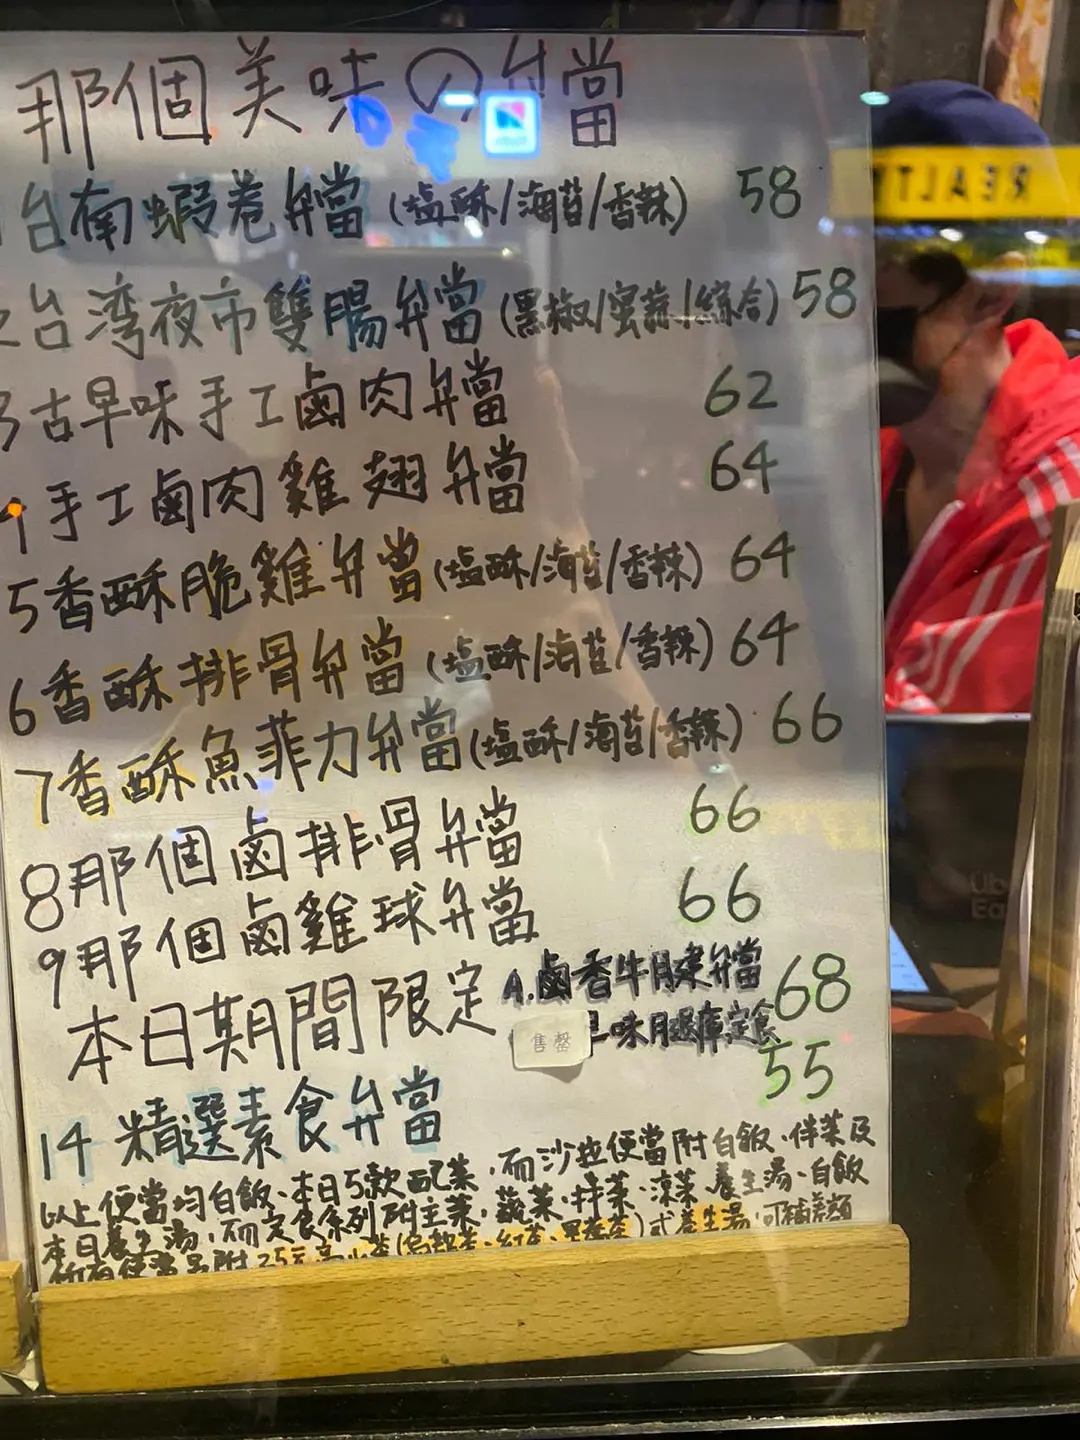 那個美味の弁當
台南蝦卷弁當(塩酥/海苔/香辣) 58
台湾夜市雙腸弁當(黑椒/蜜蒜/綜合) 58
3古早味手工鹵肉弁當 62
手工鹵肉雞翅弁當 64
5香酥脆雞弁當(塩酥/海苔/香辣) 64
6香酥排骨弁當(塩酥/海苔/香辣) 64
7香酥魚菲力弁當(塩酥/海苔/香辣) 66
8那個鹵排骨弁當 66
9那個鹵雞球弁當 66
本日期間限定 A.鹵香牛腱弁當 68
售罄 味腿庫定食
14 精選素食弁當 55
以上便當均白飯、本日5款配菜，而沙拉便當附白飯、伴菜及
本日養生湯，而定食系列附主菜、蔬菜、拌菜、凉菜、養生湯、白飯
所有便當 附 (烏龍茶、紅茶、 )或養生湯，可補差額
REALTY
Uber
Eats